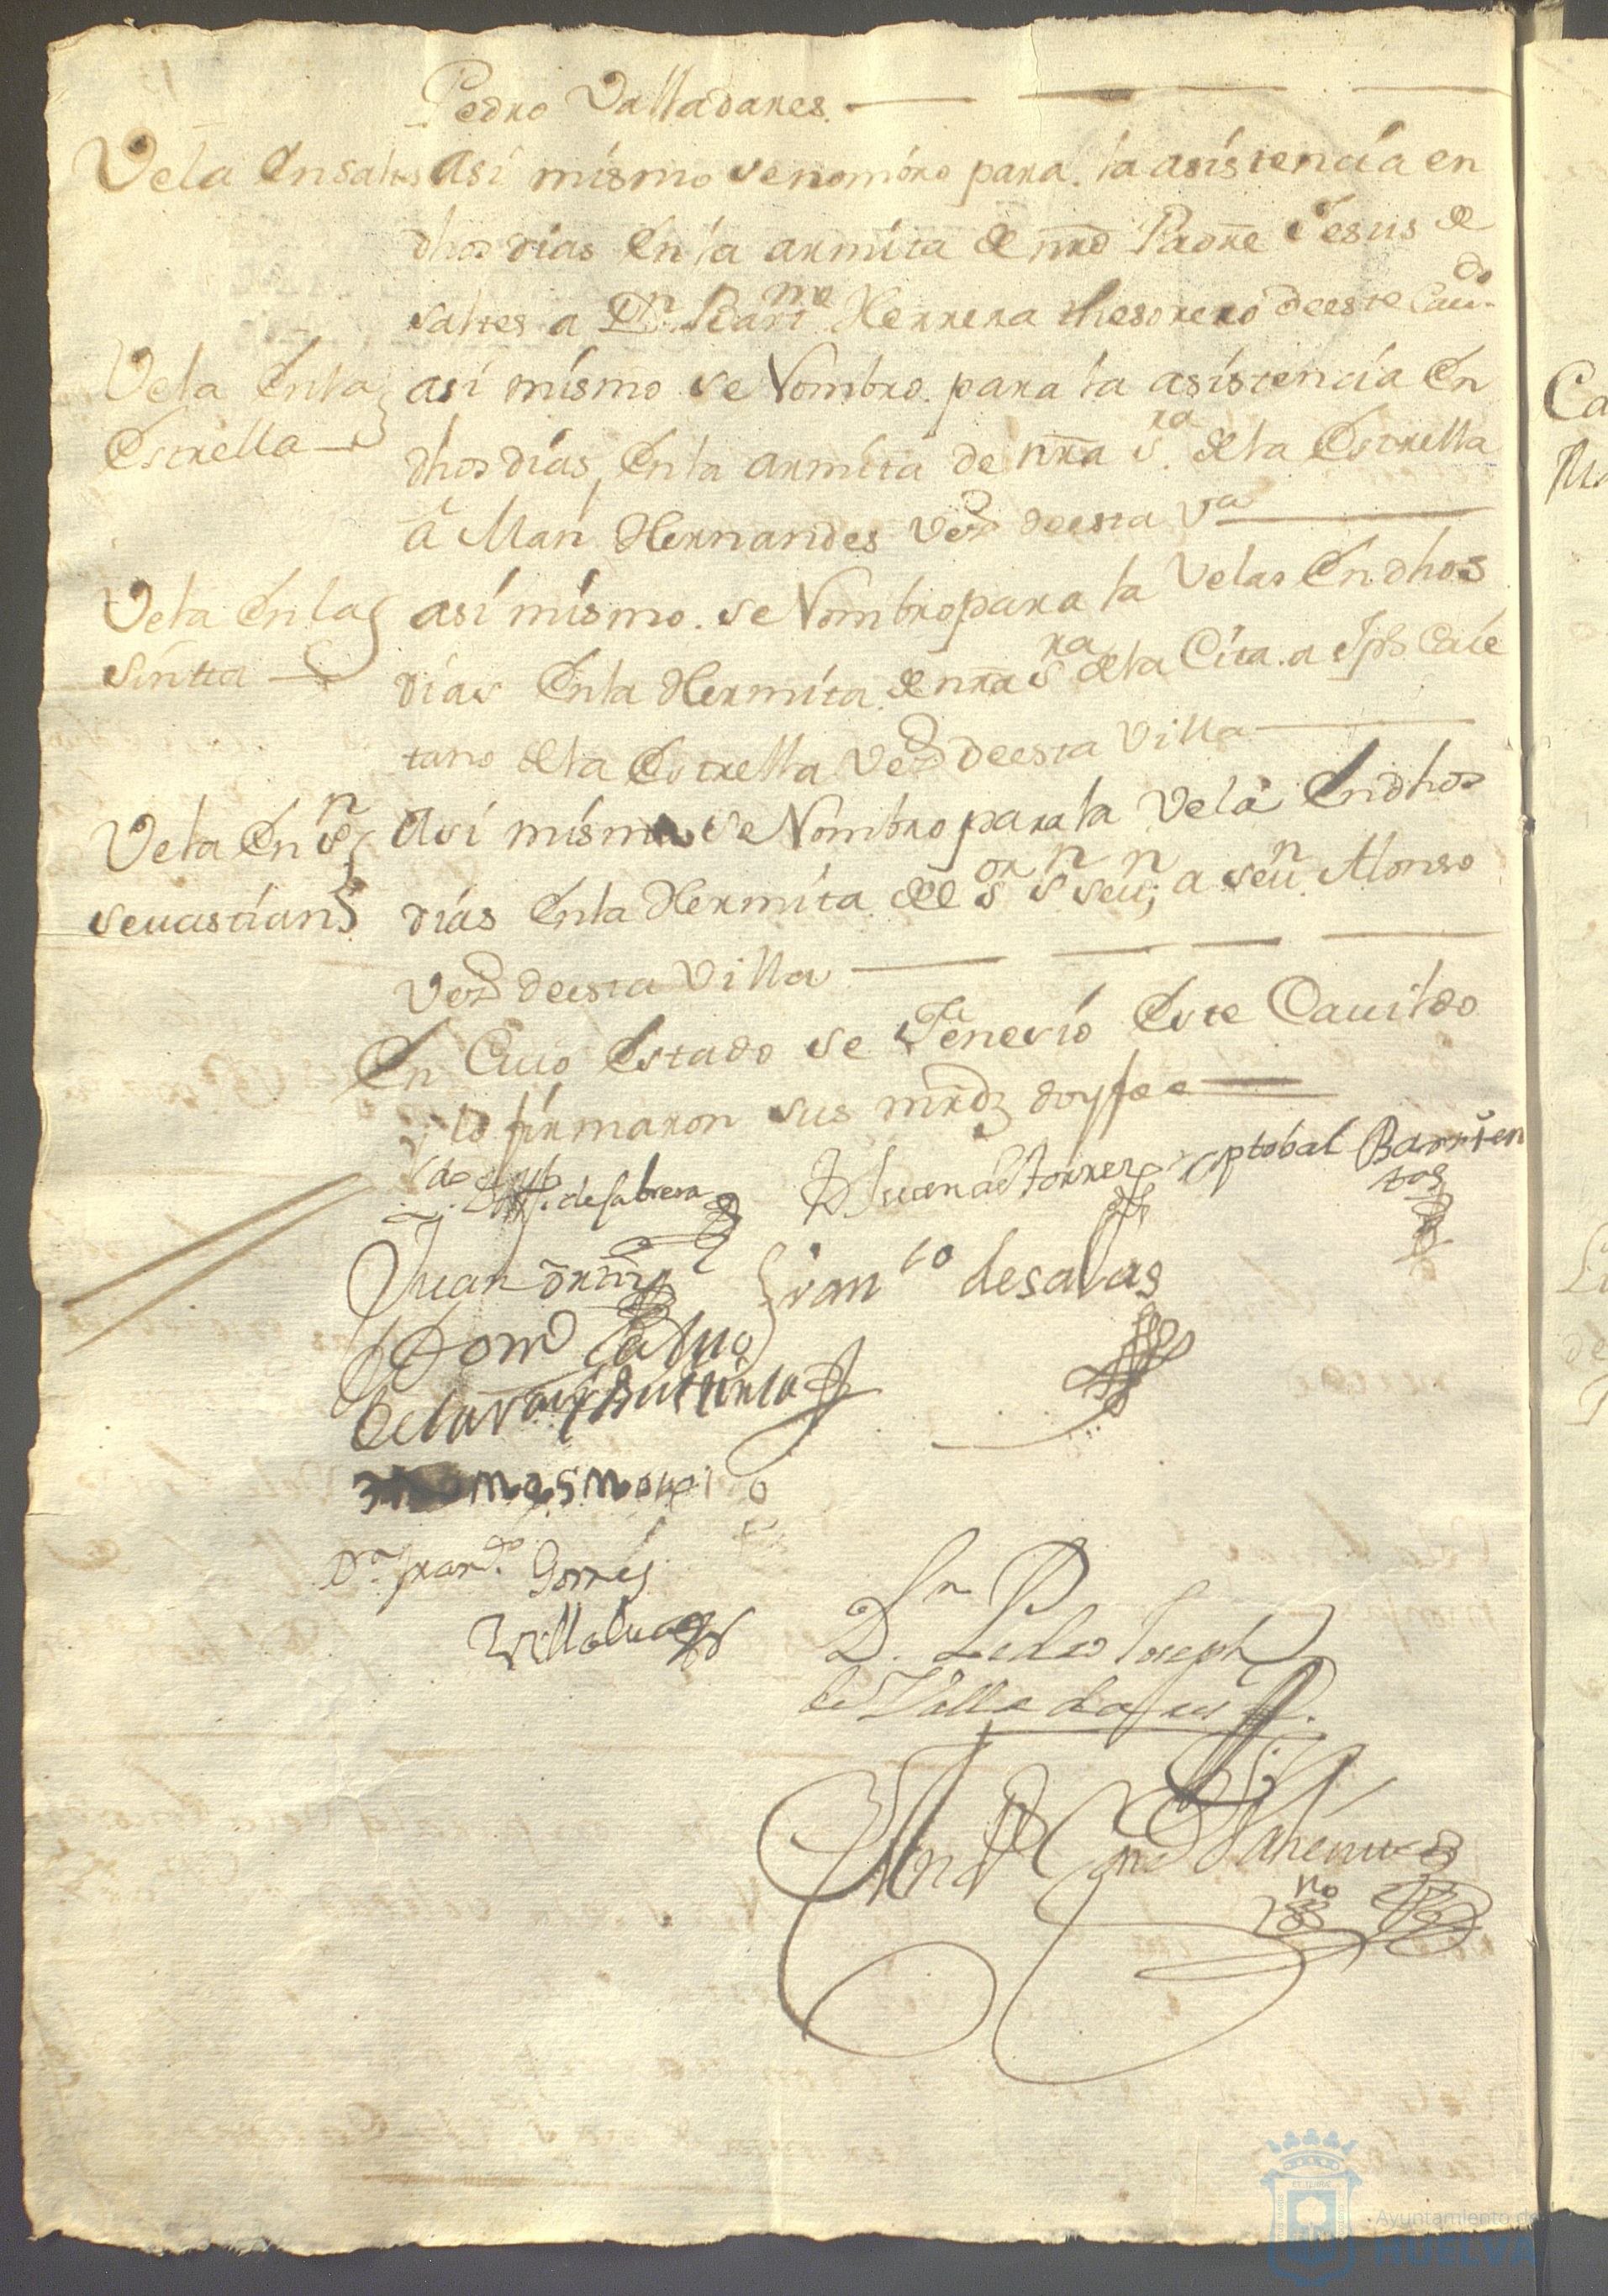 Pedro Valladares.
Vela En saltes Asi mismo se nombro para la asistencia en
dhos dias En la armita de nrô Padre Jesus de
saltes a Dn. Barme Herrera thesorero deeste Caudo
Vela Enla asi mismo se Nombro para la asistencia En
Estrella
dhos dias, Enla armita de nrâ sra. dela Estrella
â Man Hernandes Vezo deesta Va
Vela Enla asi mismo. se Nombro para la Velas En dhos
sintta
dias Enla Hermita de nra sra dela Cita. a Jph Caie
tano dela Estrella Vezo deesta Villa
Vela En sn Asi mismo se Nombro para la Vela En dhos
sevastian
dias Enla Hermita del sor sn seun; a seun Alonso
Vezo deesta Villa
En Cuio Estado se Feneсio Este Cauildo
i lo firmaron sus mrds doyfee
de Cabrera Juan de torres xptobal Barrien
tos
Juan Franco desalas
Domo
Dn. Franco. Gomes
Villalua
Dn. Pedro Joseph
de Valladares
no
Ayuntamiento de
HUELVA